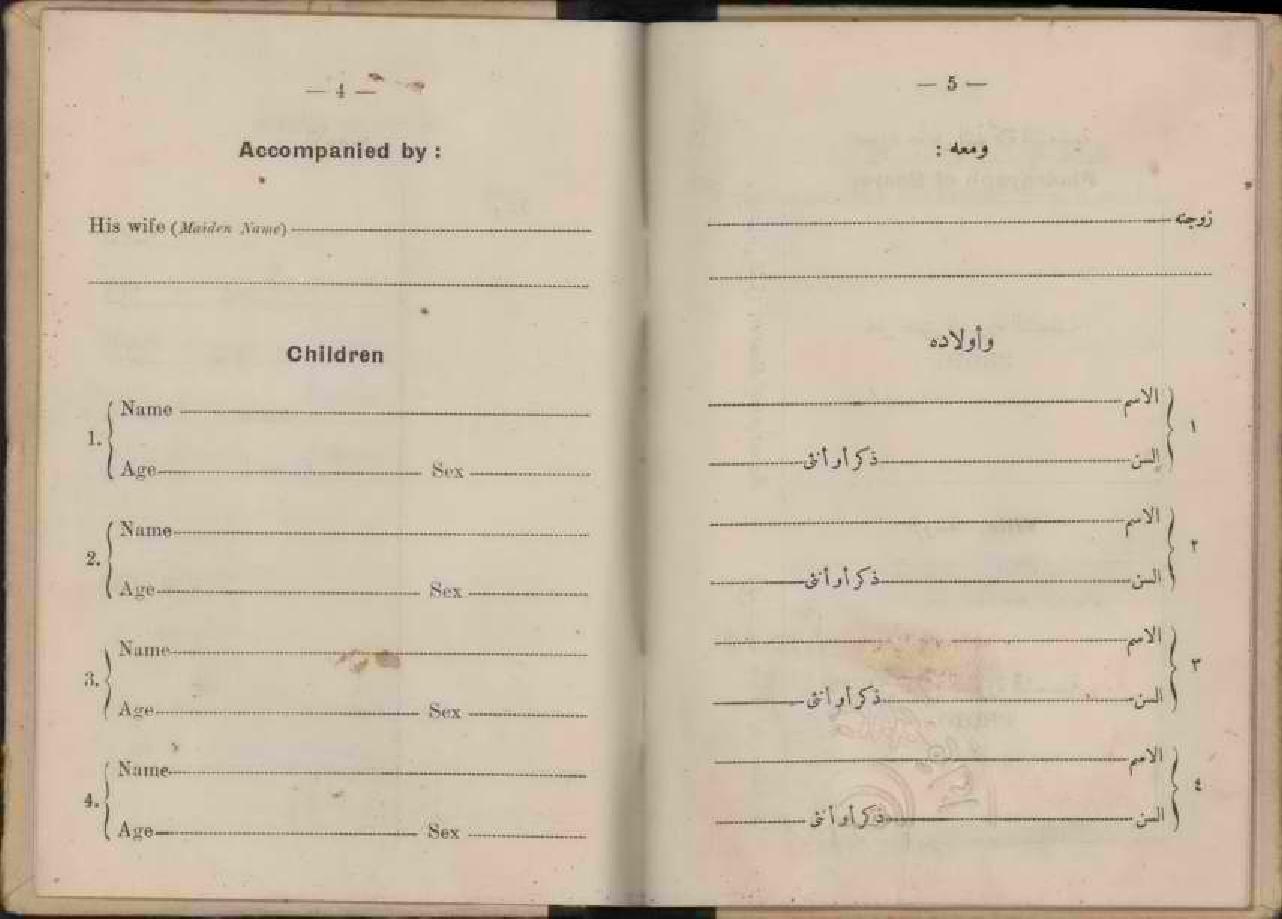 — 4 —
Accompanied by :
His wife (Maiden Name)
Children
1.
Name
Age Sex
2.
Name
Age Sex
3.
Name
Age Sex
4.
Name
Age Sex
— 5 —
ومعه :
زوجته
وأولاده
١
الاسم
السن ذكر أو أنثى
٢
الاسم
السن ذكر أو أنثى
٣
الاسم
السن ذكر أو أنثى
٤
الاسم
السن ذكر أو أنثى